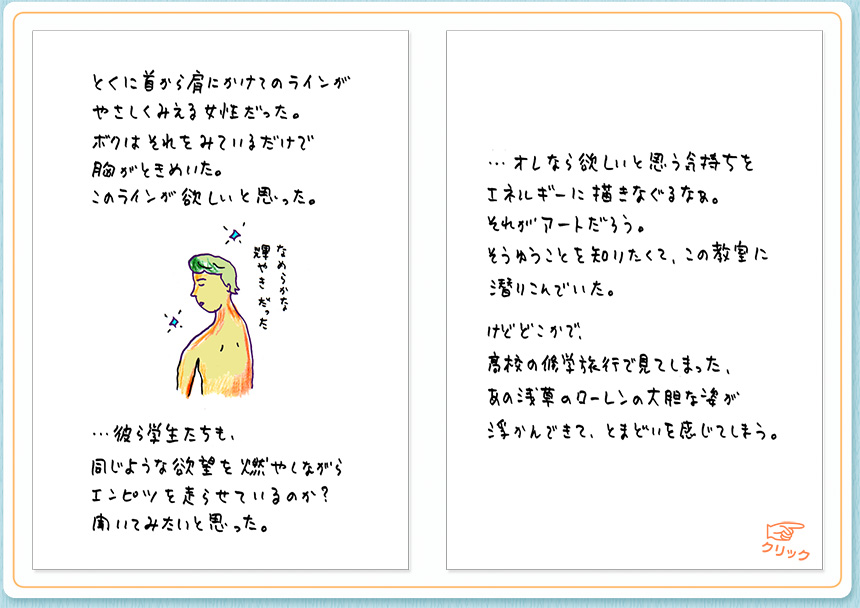 とくに首から肩にかけてのラインが
やさしくみえる女性だった。
ボクはそれをみているだけで
胸がときめいた。
このラインが欲しいと思った。
なめらかな
輝やきだった
…彼ら学生たちも、
同じような欲望を燃やしながら
エンピツを走らせているのか?
聞いてみたいと思った。
…オレなら欲しいと思う気持ちを
エネルギーに描きなぐるなぁ。
それがアートだろう。
そうゆうことを知りたくて、この教室に
潜りこんでいた。
けどどこかで、
高校の修学旅行で見てしまった、
あの浅草のローレンの大胆な姿が
浮かんできて、とまどいを感じてしまう。
クリック